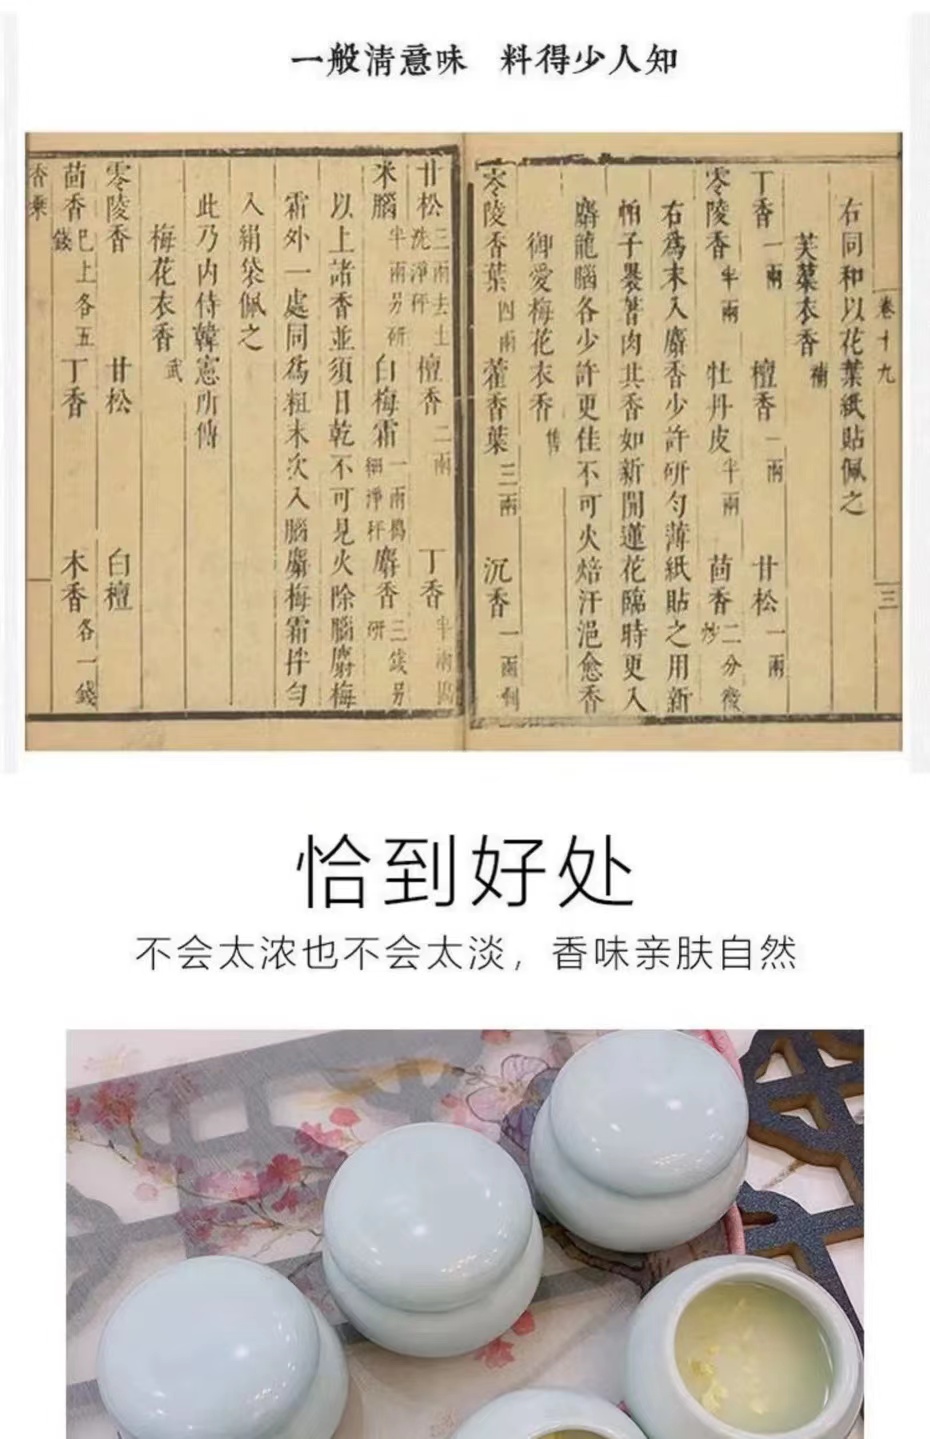 一般清意味 料得少人知
卷十九
三
右同和以花葉紙貼佩之
芙蕖衣香 補
丁香一兩 檀香一兩 甘松一兩
零陵香半兩 牡丹皮半兩 茴香二分微炒
右爲末入麝香少許研勻薄紙貼之用新
帕子裹著肉其香如新開蓮花臨時更入
麝龍腦各少許更佳不可火焙汗浥愈香
御愛梅花衣香 售
零陵香葉四兩 藿香葉三兩 沉香一兩剉
甘松三兩去土洗淨秤 檀香二兩 丁香半兩搗
米腦半兩另研 白梅霜一兩搗細淨秤 麝香三錢另研
以上諸香並須日乾不可見火除腦麝梅
霜外一處同爲粗末次入腦麝梅霜拌勻
入絹袋佩之
此乃内侍韓憲所傳
梅花衣香 武
零陵香 甘松 白檀
茴香已上各五錢 丁香 木香各一錢
香乘
恰到好处
不会太浓也不会太淡，香味亲肤自然